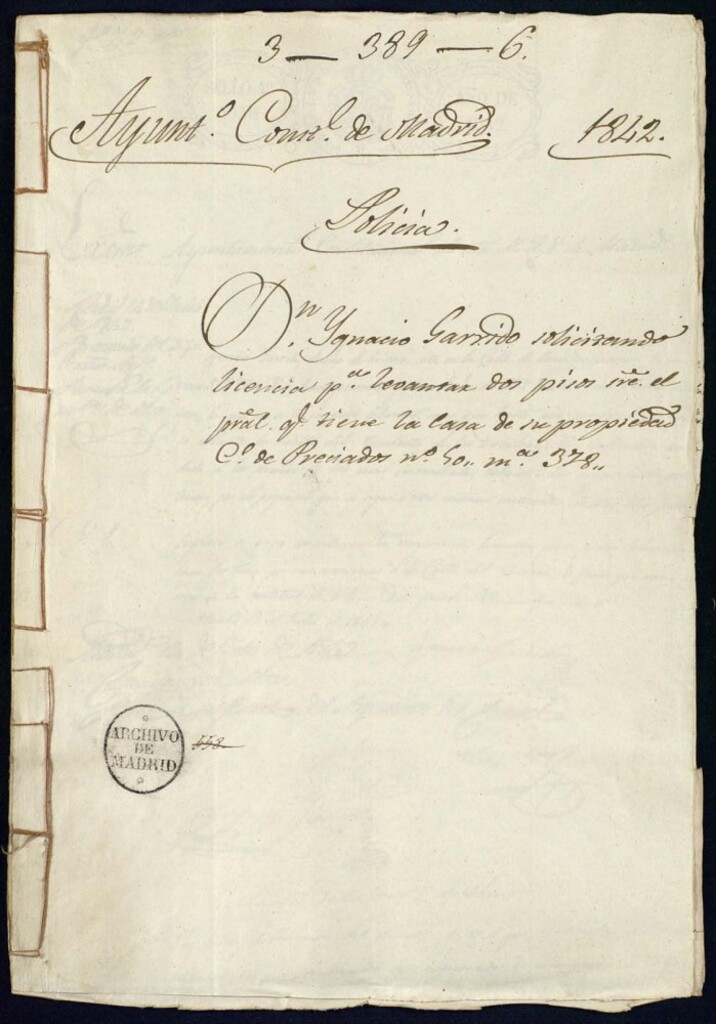 3 — 389 — 6.
Ayunt.º Const.l de Madrid. 1842.
Policia.
D.n Ygnacio Garrido solicitando
licencia p.a levantar dos pisos sre. el
pral. q.e tiene la casa de su propiedad
C.e de Preciados nº 50,, m.a 378,,
ARCHIVO
DE
MADRID